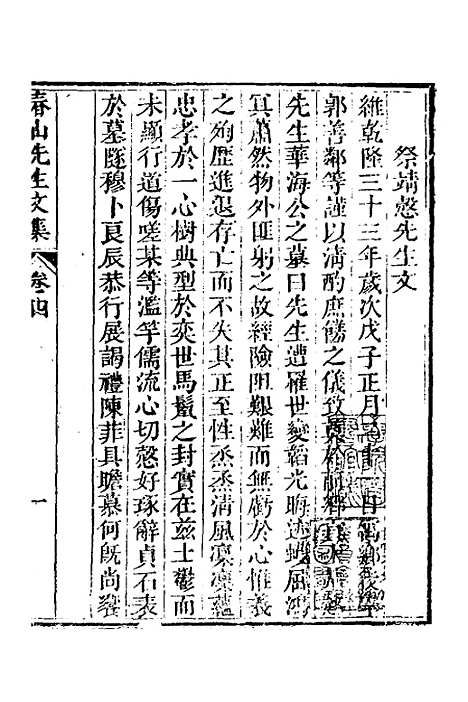 祭靖慤先生文
維乾隆三十三年歲次戊子正月
郭善鄰等謹以淸酌庶饈之儀致
先生華海公之墓曰先生遭罹世變韜光晦迹蠖屈鴻
冥蕭然物外匪躬之故經險阻艱難而無虧於心惟義
之殉歷進退存亡而不失其正至性烝烝淸風凜凜蘊
忠孝於一心樹典型於奕世馬鬣之封實在兹土鬱而
未顯行道傷嗟某等濫竽儒流心切慤好琢辭貞石表
於墓隧穆卜良辰恭行展謁禮陳菲具瞻慕何旣尚饗
春山先生文集
卷四
一